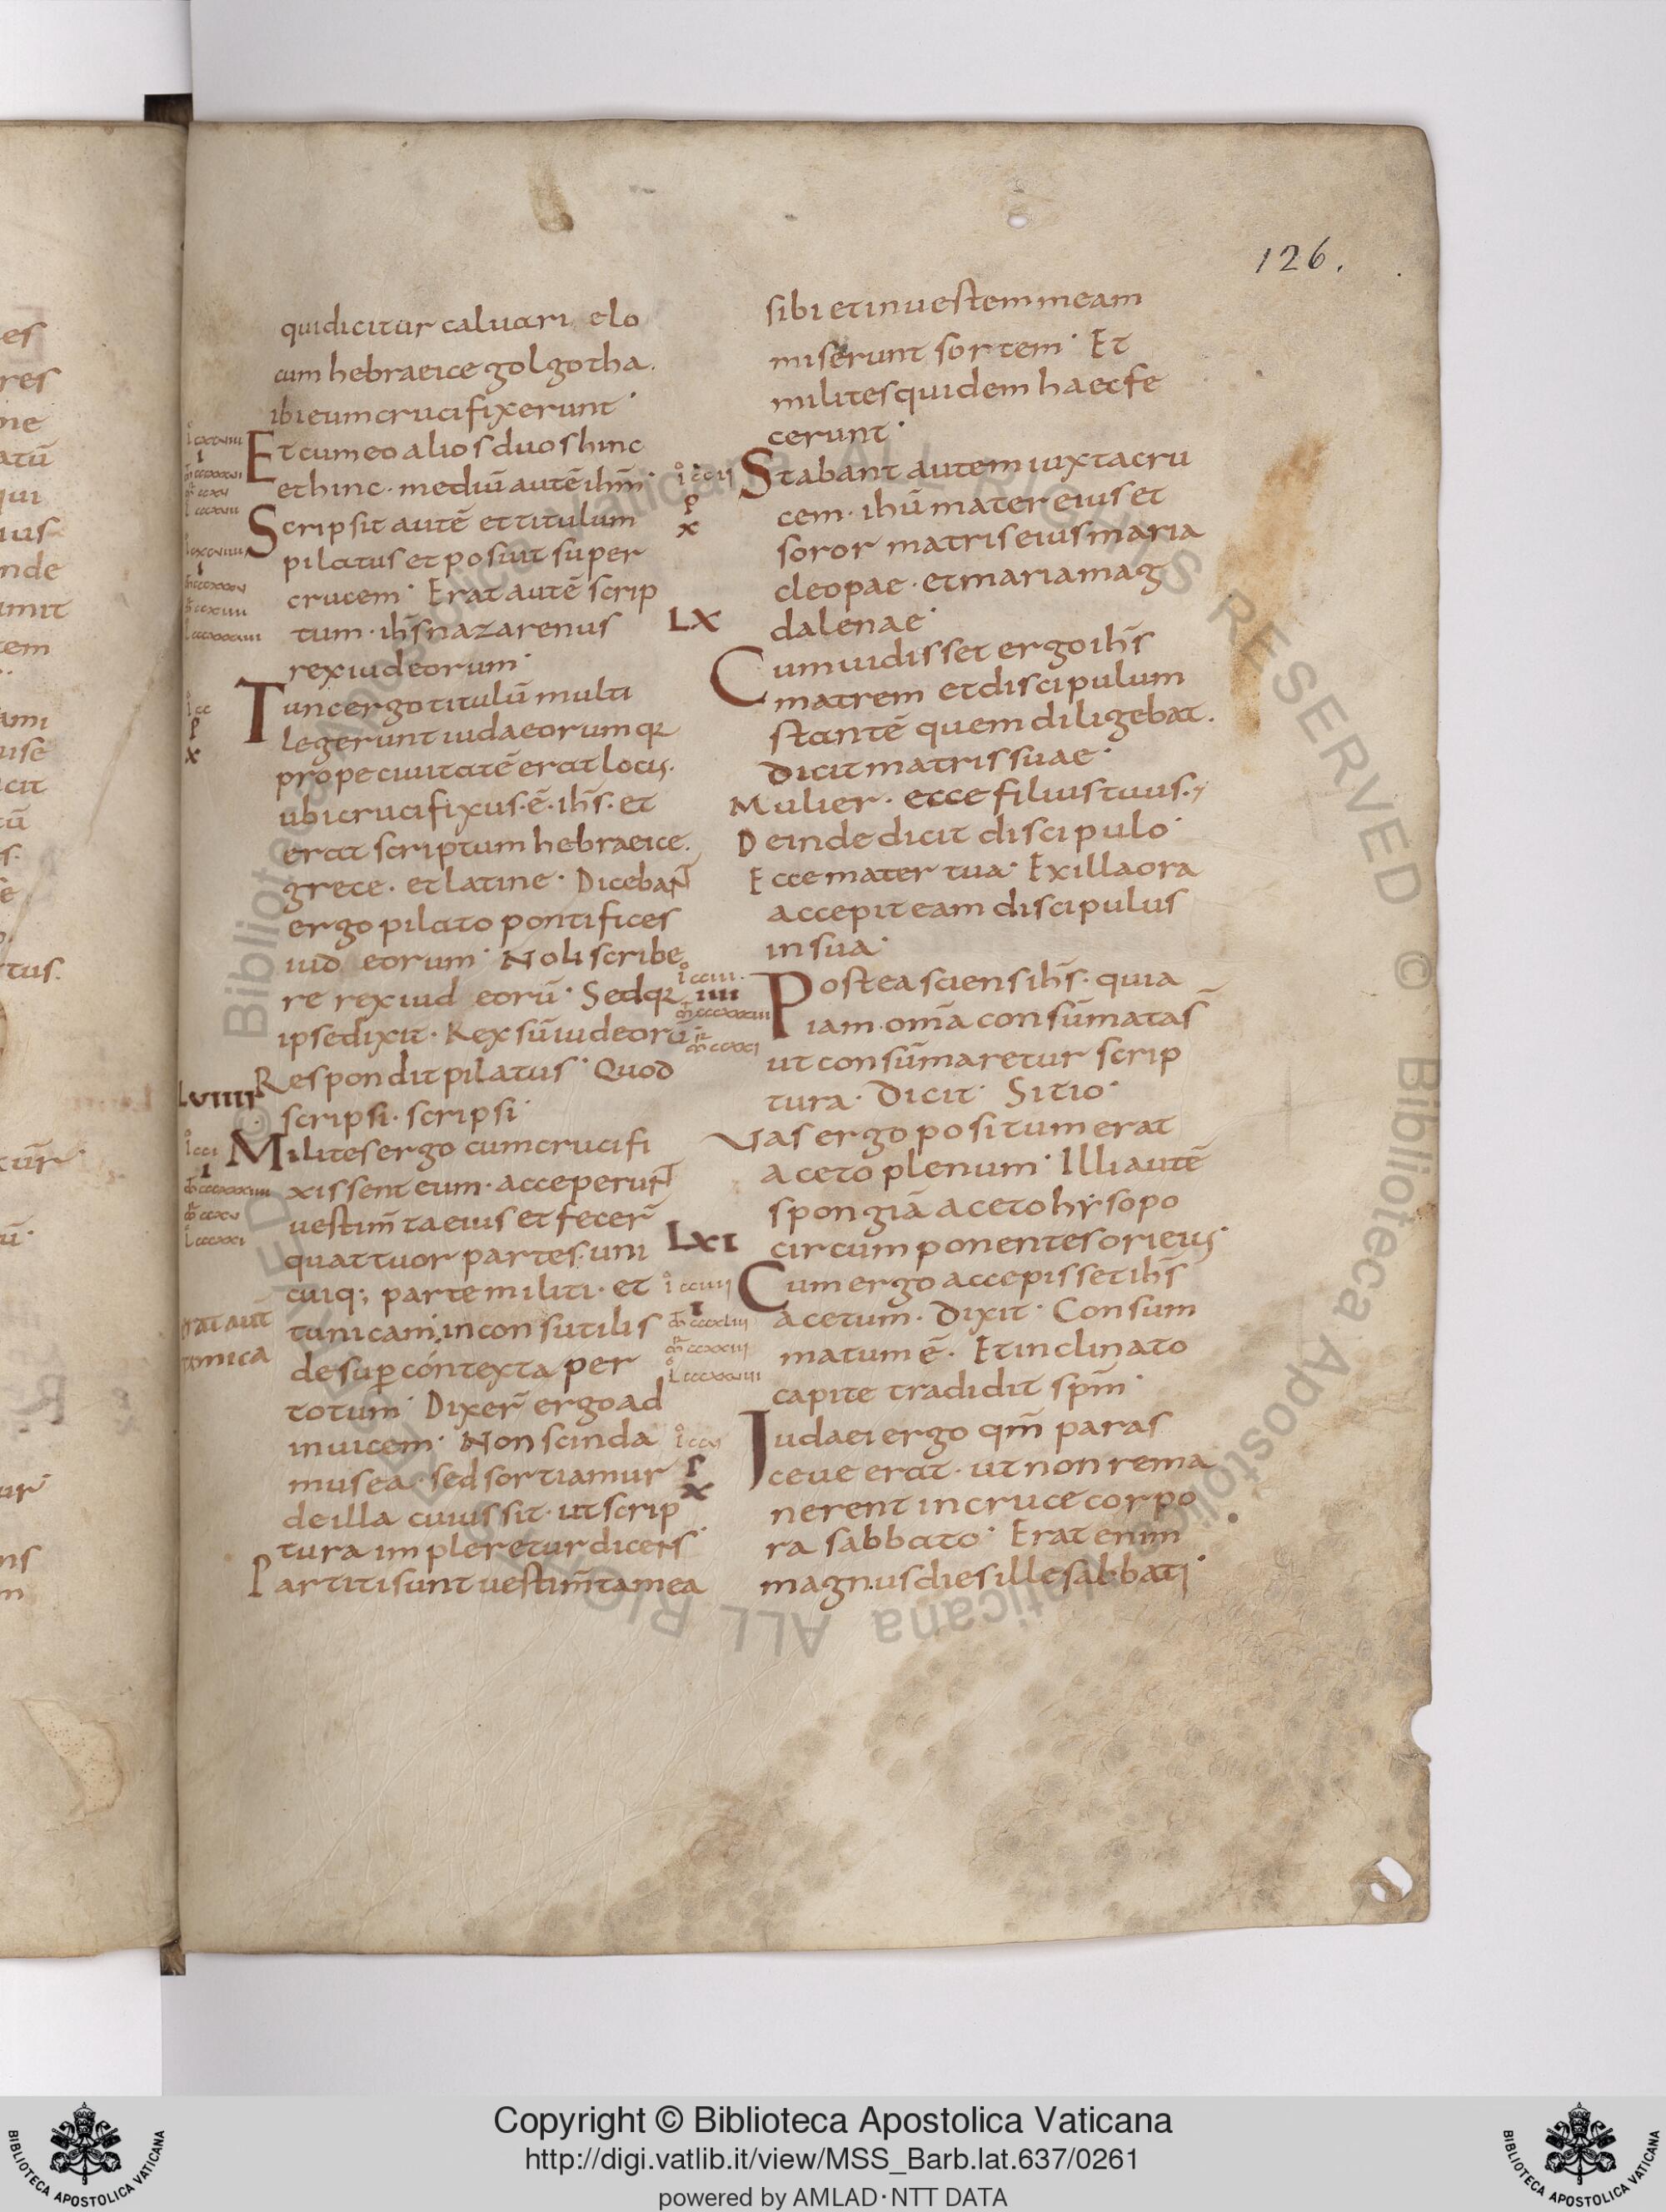 126.
quidicitur caluari elo
cum hebraeice golgotha.
ibi eum crucifixerunt
Et cum eo alios duos hinc
et hinc · mediū autē ihm̄
Scripsit autē et titulum
pilatus et posuit super
crucem · Erat autē scrip
tum · ihs̄ nazarenus
rex iudeorum
Tunc ergo titulū multi
legerunt iudaeorum qr
prope ciuitatē erat locus.
ubi crucifixus · ē · ihs̄ · et
erat scriptum hebraeice.
grece · et latine · Dicebant
ergo pilato pontifices
iud eorum · Noli scribe
re rex iud eorū · Sed qr
ipse dixit · Rex sū iudeorū
LVIIII
Respondit pilatus · Quod
scripsi · scripsi
Milites ergo cum crucifi
xissent eum · acceperunt
uestim̄ta eius et fecer̄
quattuor partes · uni
cuiq; parte militi · et
erat aut̄
tonica
tunicam, inconsutilis
desup contexta per
totum · Dixer̄ ergo ad
inuicem · Non scinda
mus ea · sed sortiamur
de illa cuius sit · ut scrip
tura impleretur dicens
Partiti sunt uestim̄ta mea
sibi et in uestem meam
miserunt sortem · Et
milites quidem haec fe
cerunt ·
Stabant autem iuxta cru
cem · ihū mater eius et
soror matris eius maria
cleopae · et maria mag
LX
dalenae
Cum uidisset ergo ihs̄
matrem et discipulum
stantē quem diligebat.
dicit matri suae ·
Mulier · ecce filius tuus.
Deinde dicit discipulo
Ecce mater tua · Ex illa ora
accepit eam discipulus
in sua ·
Postea sciens ihs̄ · quia
iam · omā consūmata s̄
ut consūmaretur scrip
tura · Dicit · Sitio ·
Vas ergo positum erat
aceto plenum · Illi autē
spongiā aceto hysopo
LXI
circumponentes ori eius
Cum ergo accepisset ihs̄
acetum · Dixit · Consum
matum ē · Et inclinato
capite tradidit spm̄
Iudaei ergo qm̄ paras
ceue erat · ut non rema
nerent in cruce corpo
ra sabbato · Erat enim
magnus dies ille sabbati
© Biblioteca Apostolica Vaticana ALL RIGHTS RESERVED
Copyright © Biblioteca Apostolica Vaticana
http://digi.vatlib.it/view/MSS_Barb.lat.637/0261
powered by AMLAD·NTT DATA
BIBLIOTECA APOSTOLICA VATICANA
BIBLIOTECA APOSTOLICA VATICANA